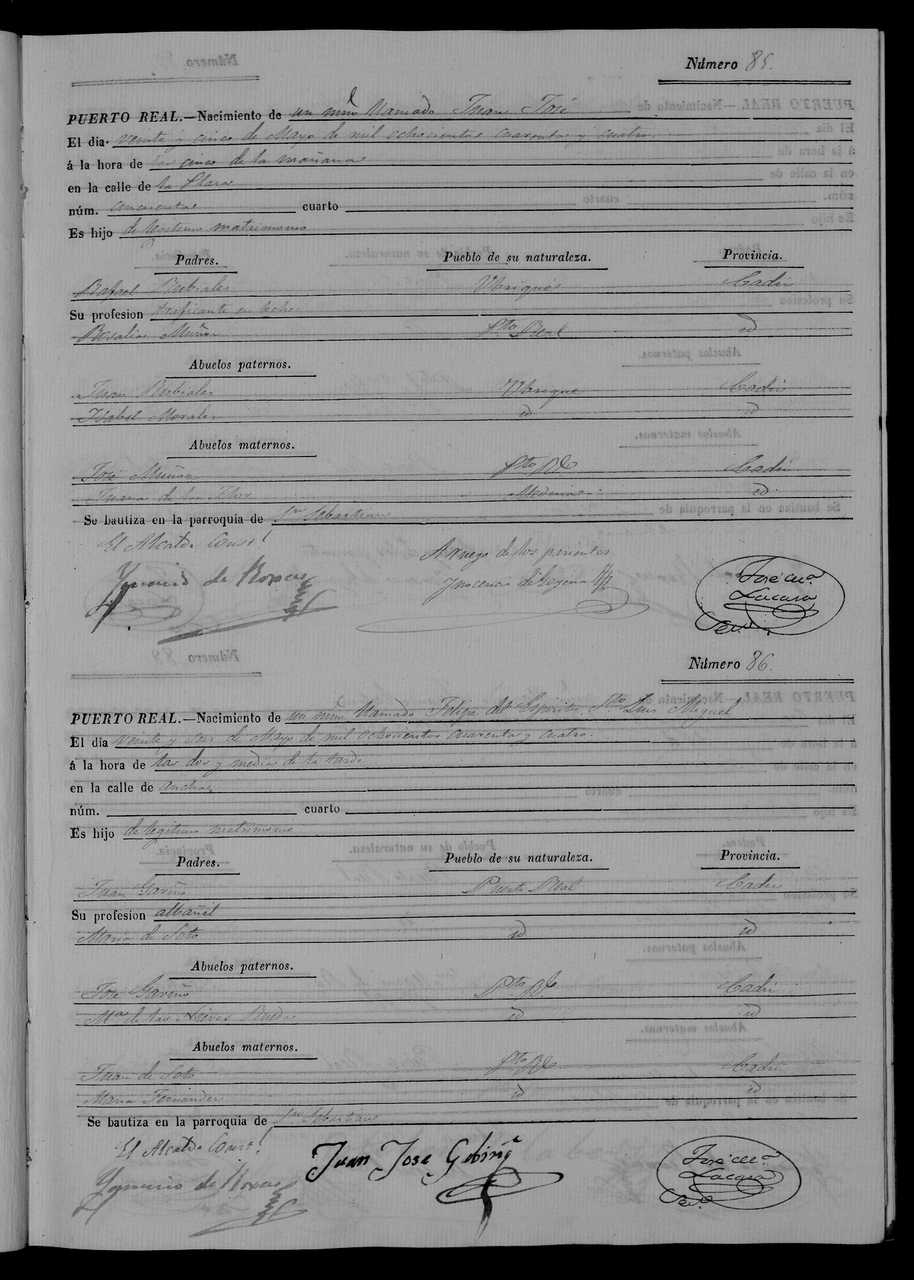 Número 85.
PUERTO REAL.—Nacimiento de un niño llamado Juan José
El dia veinte y cinco de Mayo de mil ochocientos cuarenta y cuatro.
á la hora de las cinco de la mañana
en la calle de la Plaza
núm. cincuenta cuarto
Es hijo de legitimo matrimonio
Padres. Pueblo de su naturaleza. Provincia.
Rafael Rubiales Ubrique Cadiz
Su profesion traficante en
Rosalia Muñoz Pto Real id
Abuelos paternos.
Juan Rubiales Ubrique Cadiz
Isabel Morales id id
Abuelos maternos.
José Muñoz Pto Rl Cadiz
Juana de la Medina id.
Se bautiza en la parroquia de Sn Sebastian
El Alcalde Const.l
Ygnacio de A ruego de los parientes
Inocencio José Ma.
Lacara
Numero 86.
PUERTO REAL.—Nacimiento de un niño llamado Felipe del Espiritu Sto Luis Miguel
El dia veinte y seis de Mayo de mil ochocientos cuarenta y cuatro.
á la hora de las dos y media de la tarde
en la calle de ancha
núm. cuarto
Es hijo de legitimo matrimonio
Padres. Pueblo de su naturaleza. Provincia.
Juan Gaviño Puerto Real Cadiz
Su profesion albañil
Maria de Soto id id
Abuelos paternos.
José Gaviño Pto Rl Cadiz
Ma de las Nieves id id
Abuelos maternos.
Juan de Soto Pto Rl Cadiz
Maria Fernandez id id
Se bautiza en la parroquia de Sn Sebastian
El Alcalde Const.l
Ygnacio de Juan Jose José Ma.
Lacara